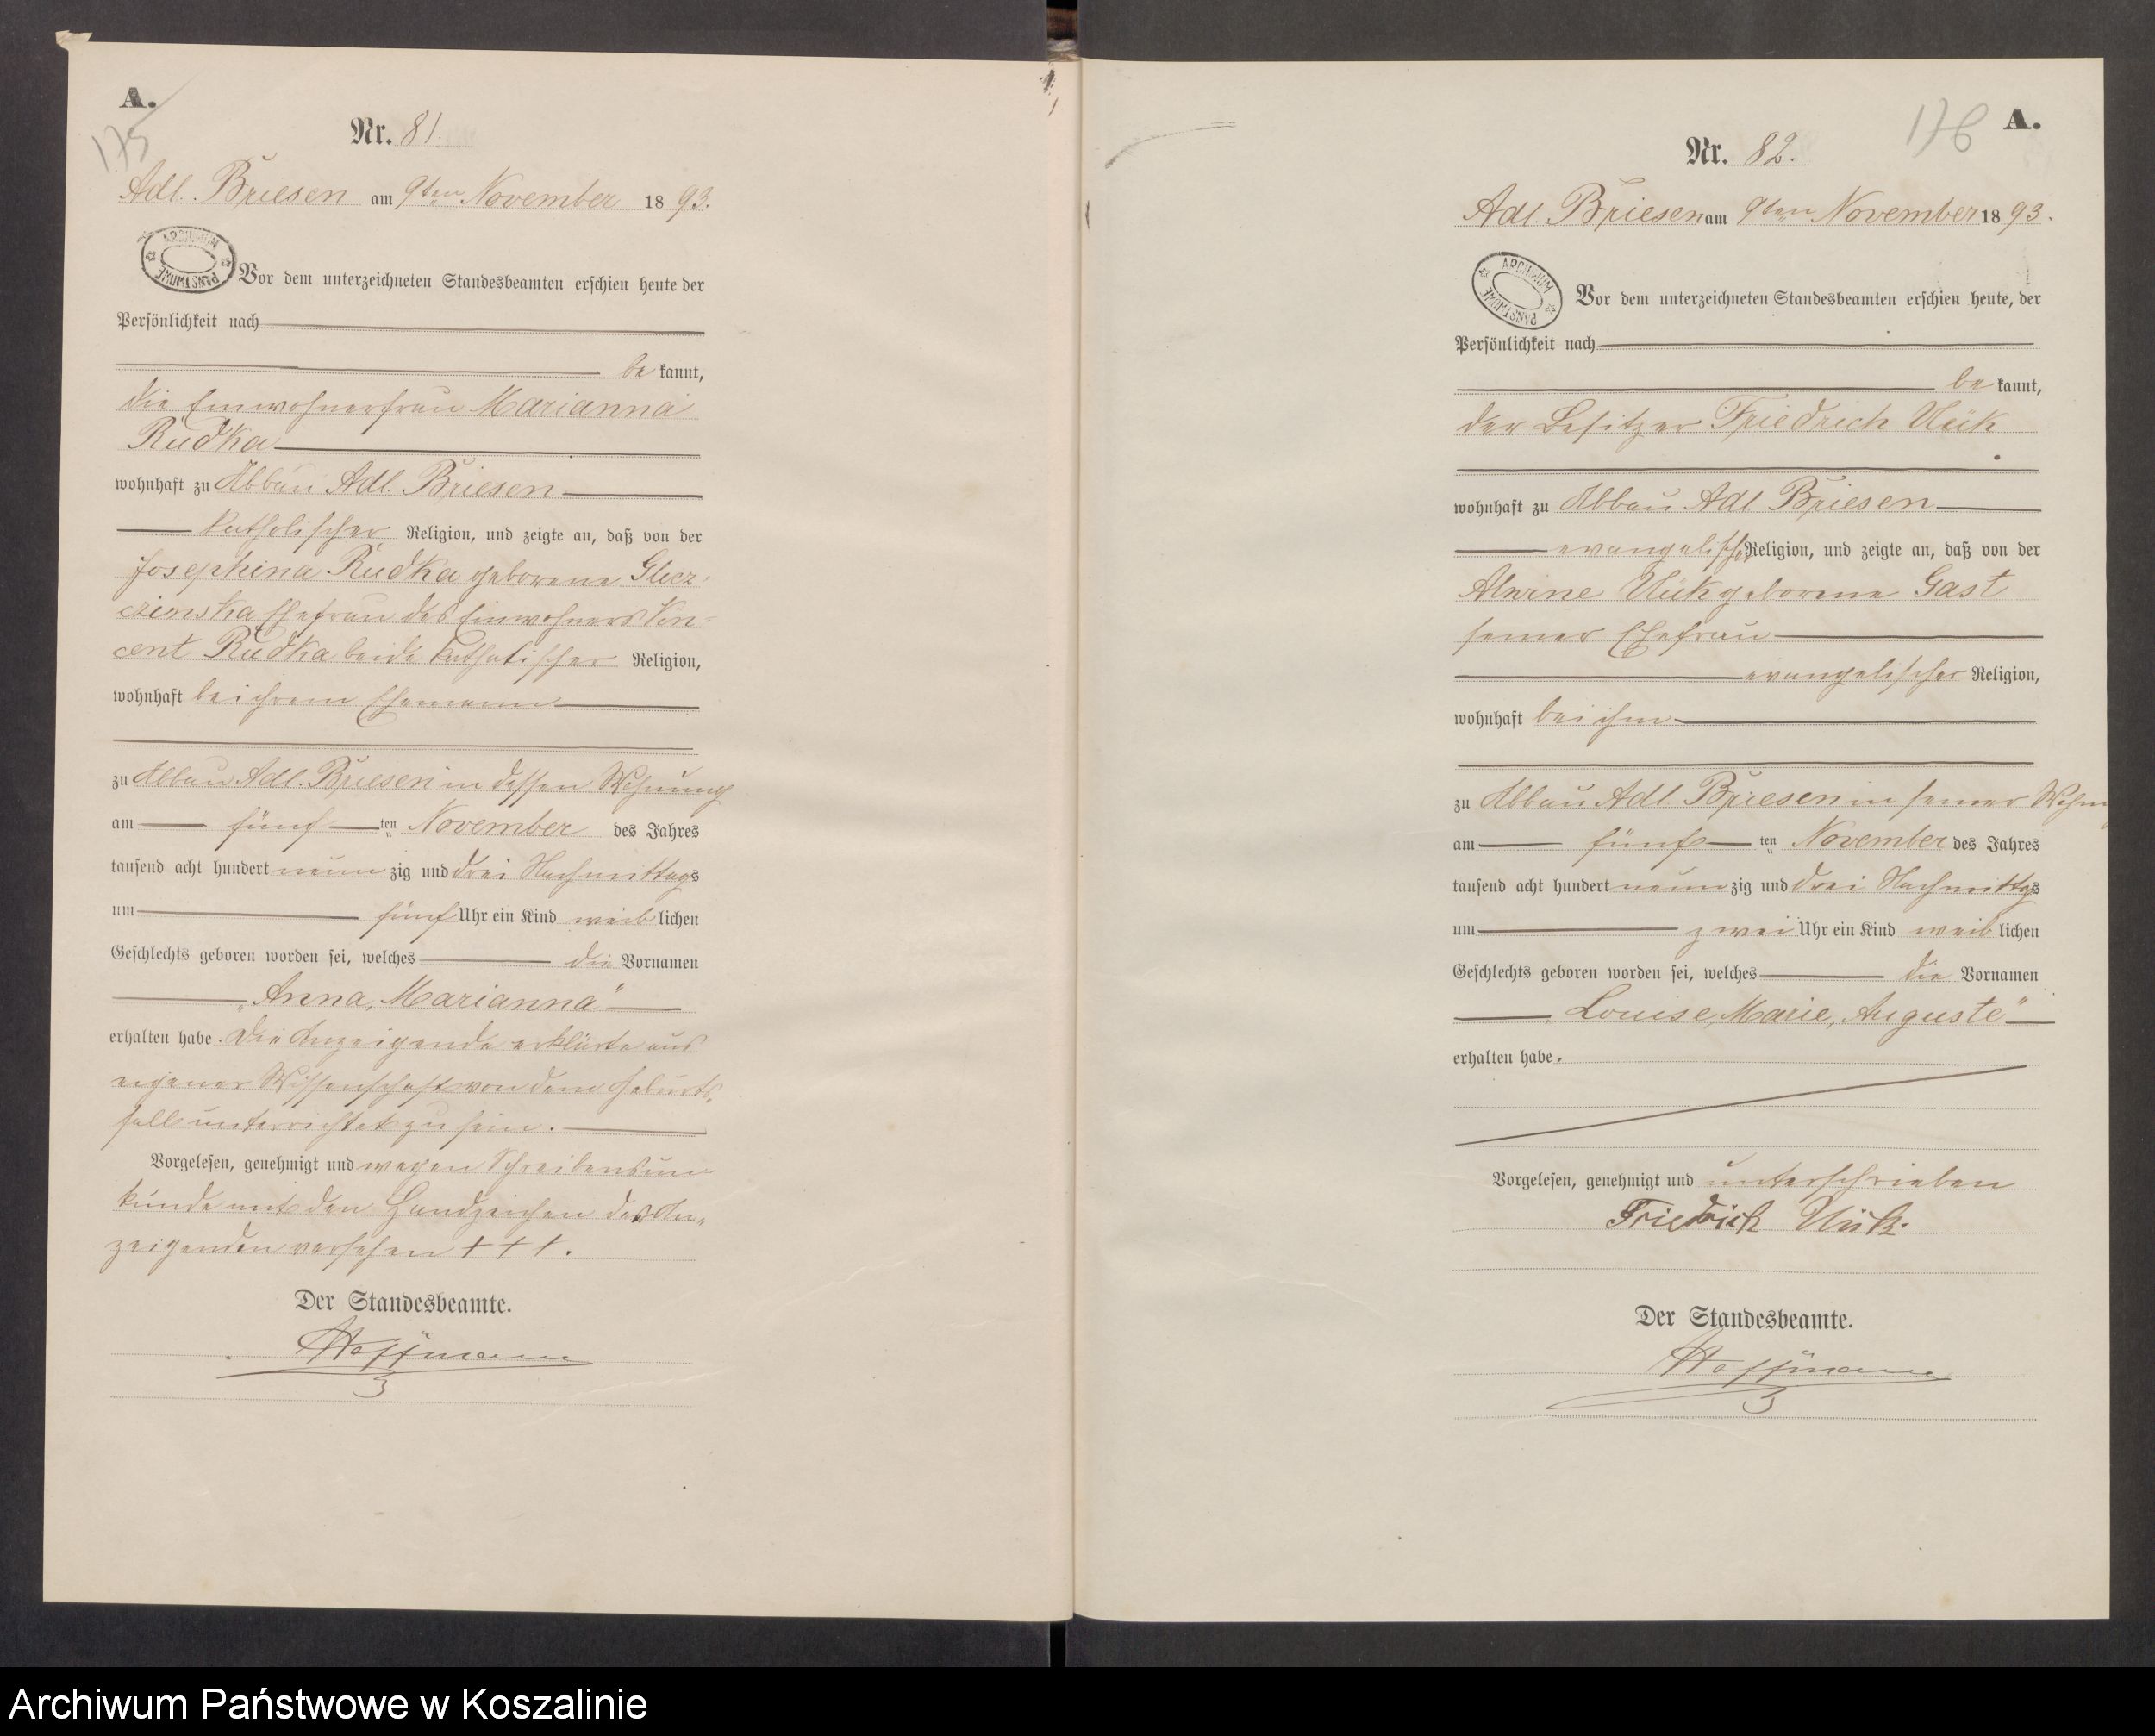 A.
175
Nr. 81.
Adl. Briesen am 9ten November 1893.
ARCHIWUM PAŃSTWOWE
Vor dem unterzeichneten Standesbeamten erschien heute der
Persönlichkeit nach
be kannt,
die Einwohnerfrau Marianna
Rudka
wohnhaft zu Abbau Adl. Briesen
katholischer Religion, und zeigte an, daß von der
Josephina Rudka geborene
Ehefrau des Einwohners Vin-
cent Rudka beide katholischer Religion,
wohnhaft bei ihrem Ehemann
zu Abbau Adl. Briesen in dessen Wohnung
am fünf ten November des Jahres
tausend acht hundert neun zig und drei Nachmittags
um fünf Uhr ein Kind weib lichen
Geschlechts geboren worden sei, welches die Vornamen
„Anna, Marianna"
erhalten habe. Die Anzeigende erklärte aus
eigener Wissenschaft von dem Geburts-
fall unterrichtet zu sein.
Vorgelesen, genehmigt und wegen Schreibensun
kunde mit den Handzeichen der An-
zeigenden versehen + + +.
Der Standesbeamte.
Hoffmann
A.
176
Nr. 82.
Adl. Briesen am 9ten November 1893.
ARCHIWUM PAŃSTWOWE
Vor dem unterzeichneten Standesbeamten erschien heute, der
Persönlichkeit nach
be kannt,
der Besitzer Friedrich Ück
wohnhaft zu Abbau Adl Briesen
evangelischer Religion, und zeigte an, daß von der
Ück geborene Gast
seiner Ehefrau
evangelischer Religion,
wohnhaft bei ihm
zu Abbau Adl. Briesen in seiner
am fünf ten November des Jahres
tausend acht hundert neun zig und drei Nachmittags
um zwei Uhr ein Kind weib lichen
Geschlechts geboren worden sei, welches die Vornamen
„Louise, Marie, Auguste"
erhalten habe.
Vorgelesen, genehmigt und unterschrieben
Friedrich Ück.
Der Standesbeamte.
Hoffmann
Archiwum Państwowe w Koszalinie